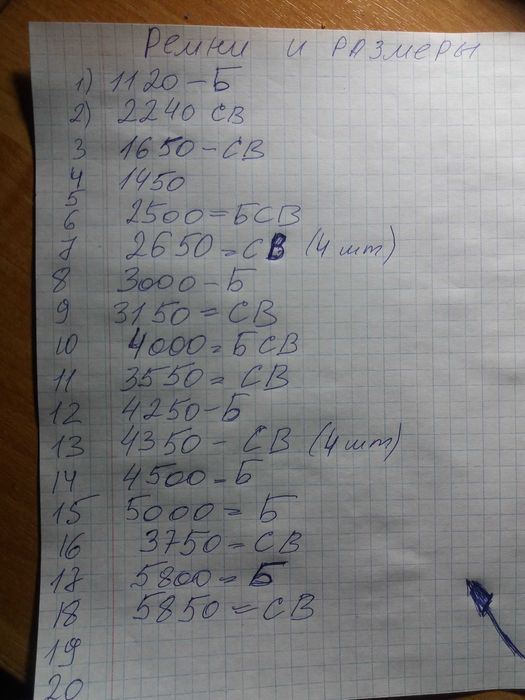 Ремни и размеры
1) 1120 - Б
2) 2240 СВ
3 1650 - СВ
4 1450
5
6 2500 = БСВ
7 2650 = СВ (4 шт)
8 3000 - Б
9 3150 = СВ
10 4000 = БСВ
11 3550 = СВ
12 4250 - Б
13 4350 - СВ (4 шт)
14 4500 = Б
15 5000 = Б
16 3750 = СВ
17 5800 = Б
18 5850 = СВ
19
20